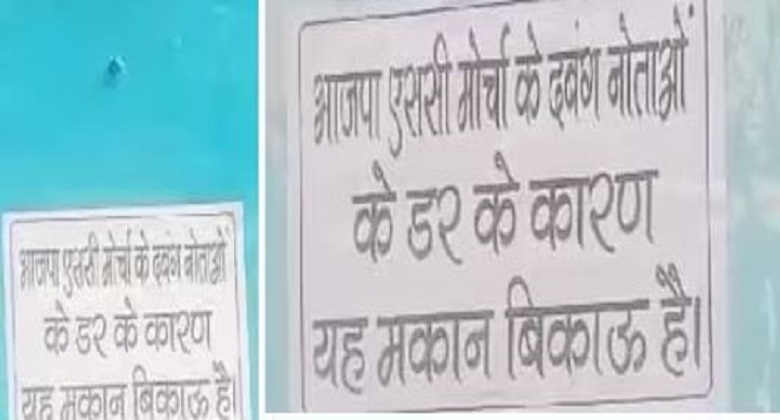 भाजपा एससी मोर्चा के दबंग नोताओं
के डर के कारण
यह मकान बिकाऊ है।
भाजपा एससी मोर्चा के दबंग नोताओं
के डर के कारण
यह मकान बिकाऊ है।